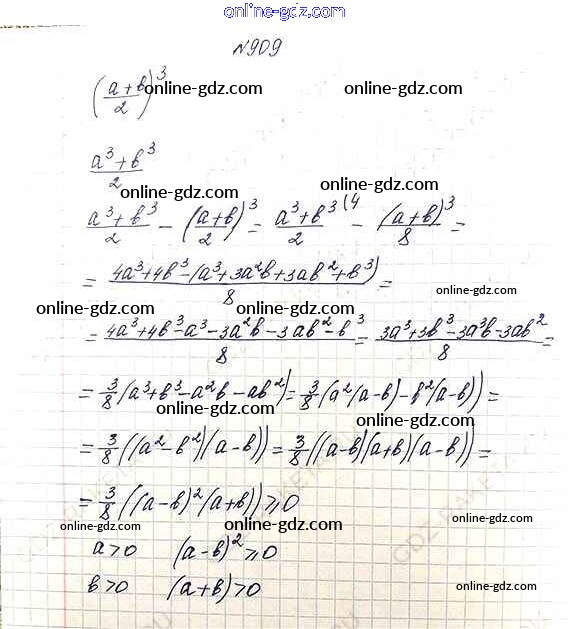 online-gdz.com
№909
((a+b)/2)^3 online-gdz.com online-gdz.com
(a^3+b^3)/2
online-gdz.com online-gdz.com
(a^3+b^3)/2 - ((a+b)/2)^3 = (a^3+b^3)/2 (4 - (a+b)^3/8 =
= (4a^3+4b^3-(a^3+3a^2b+3ab^2+b^3))/8 =
online-gdz.com
online-gdz.com online-gdz.com
= (4a^3+4b^3-a^3-3a^2b-3ab^2-b^3)/8 = (3a^3+3b^3-3a^3b-3ab^2)/8 =
online-gdz.com online-gdz.com
= 3/8 (a^3+b^3-a^2b-ab^2) = 3/8 (a^2(a-b)-b^2(a-b)) =
online-gdz.com
= 3/8 ((a^2-b^2)(a-b)) = 3/8 ((a-b)(a+b)(a-b)) =
online-gdz.com
= 3/8 ((a-b)^2(a+b)) ⩾ 0
online-gdz.com online-gdz.com online-gdz.com
a>0 (a-b)^2 ⩾ 0
b>0 (a+b)>0
online-gdz.com